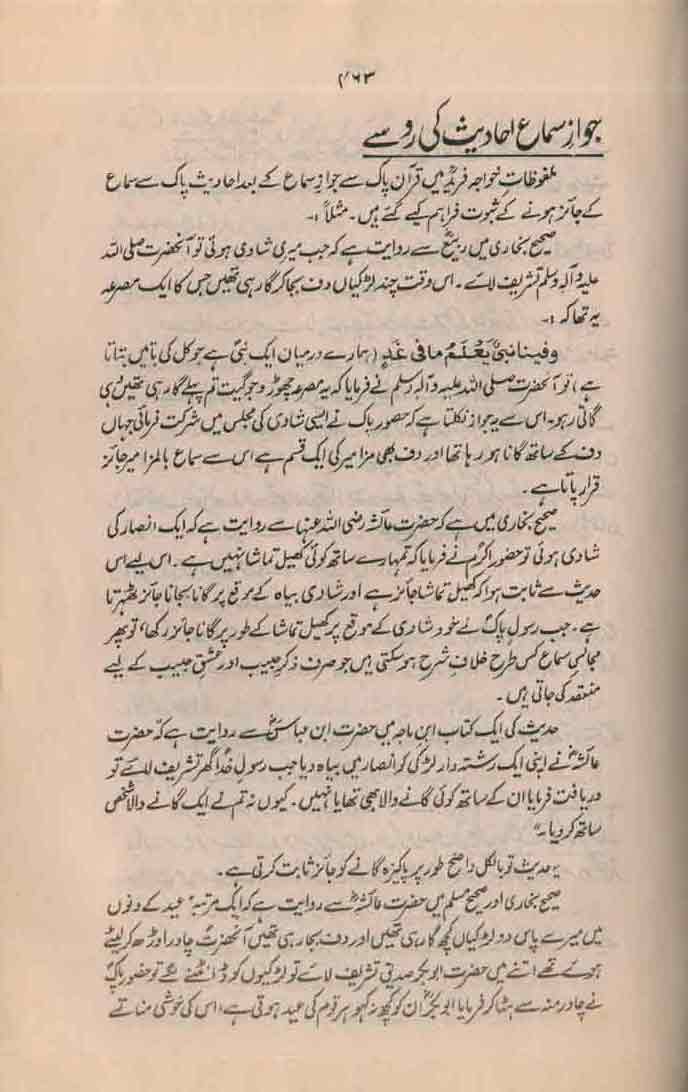 ۴۶۳
جوازِ سماع احادیث کی رو سے
ملفوظاتِ خواجہ فریدؒ میں قرآن پاک سے جوازِ سماع کے بعد احادیث پاک سے سماع
کے جائز ہونے کے ثبوت فراہم کیے گئے ہیں۔ مثلاً :۔
صحیح بخاری میں ربیعؓ سے روایت ہے کہ جب میری شادی ہوئی تو آنحضرت صلی اللہ
علیہ وآلہ وسلم تشریف لائے۔ اس وقت چند لڑکیاں دف بجا کر گا رہی تھیں جس کا ایک مصرعہ
یہ تھا کہ :۔
وفینا نبیٌ یَعْلَمُ مافی غَدٍ (ہمارے درمیان ایک نبیؐ ہے جو کل کی باتیں بتاتا
ہے) تو آنحضرت صلی اللہ علیہ وآلہ وسلم نے فرمایا کہ یہ مصرعہ چھوڑ دو جو گیت تم پہلے گا رہی تھیں وہی
گاتی رہو۔ اس سے یہ جواز نکلتا ہے کہ حضور پاک نے ایسی شادی کی مجلس میں شرکت فرمائی جہاں
دف کے ساتھ گانا ہو رہا تھا اور دف بھی مزامیر کی ایک قسم ہے اس سے سماع بالمزامیر جائز
قرار پاتا ہے۔
صحیح بخاری میں ہے کہ حضرت عائشہ رضی اللہ عنہا سے روایت ہے کہ ایک انصار کی
شادی ہوئی تو حضور اکرمؐ نے فرمایا کہ تمہارے ساتھ کوئی کھیل تماشا نہیں ہے۔ اس لیے اس
حدیث سے ثابت ہوا کہ کھیل تماشا جائز ہے اور شادی بیاہ کے موقع پر گانا بجانا جائز ٹھہرتا
ہے۔ جب رسولِ پاکؐ نے خود شادی کے موقع پر کھیل تماشا کے طور پر گانا جائز رکھا، تو پھر
مجالسِ سماع کس طرح خلافِ شرح ہو سکتی ہیں جو صرف ذکرِ حبیب اور عشقِ حبیب کے لیے
منعقد کی جاتی ہیں۔
حدیث کی ایک کتاب ابن ماجہ میں حضرت ابن عباسؓ سے روایت ہے کہ حضرت
عائشہؓ نے اپنی ایک رشتہ دار لڑکی کو انصار میں بیاہ دیا جب رسولِ خداؐ گھر تشریف لائے تو
دریافت فرمایا ان کے ساتھ کوئی گانے والا بھی تھا یا نہیں۔ کیوں نہ تم نے ایک گانے والا شخص
ساتھ کر دیا۔"
یہ حدیث تو بالکل واضح طور پر پاکیزہ گانے کو جائز ثابت کرتی ہے۔
صحیح بخاری اور صحیح مسلم میں حضرت عائشہؓ سے روایت ہے کہ ایک مرتبہ عید کے دنوں
میں میرے پاس دو لڑکیاں کچھ گا رہی تھیں اور دف بجا رہی تھیں آنحضرتؐ چادر اوڑھ کر لیٹے
ہوئے تھے اتنے میں حضرت ابوبکر صدیق تشریف لائے تو لڑکیوں کو ڈانٹنے لگے تو حضور پاکؐ
نے چادر منہ سے ہٹا کر فرمایا ابوبکرؓ ان کو کچھ نہ کہو ہر قوم کی عید ہوتی ہے، اس کی خوشی مناتے